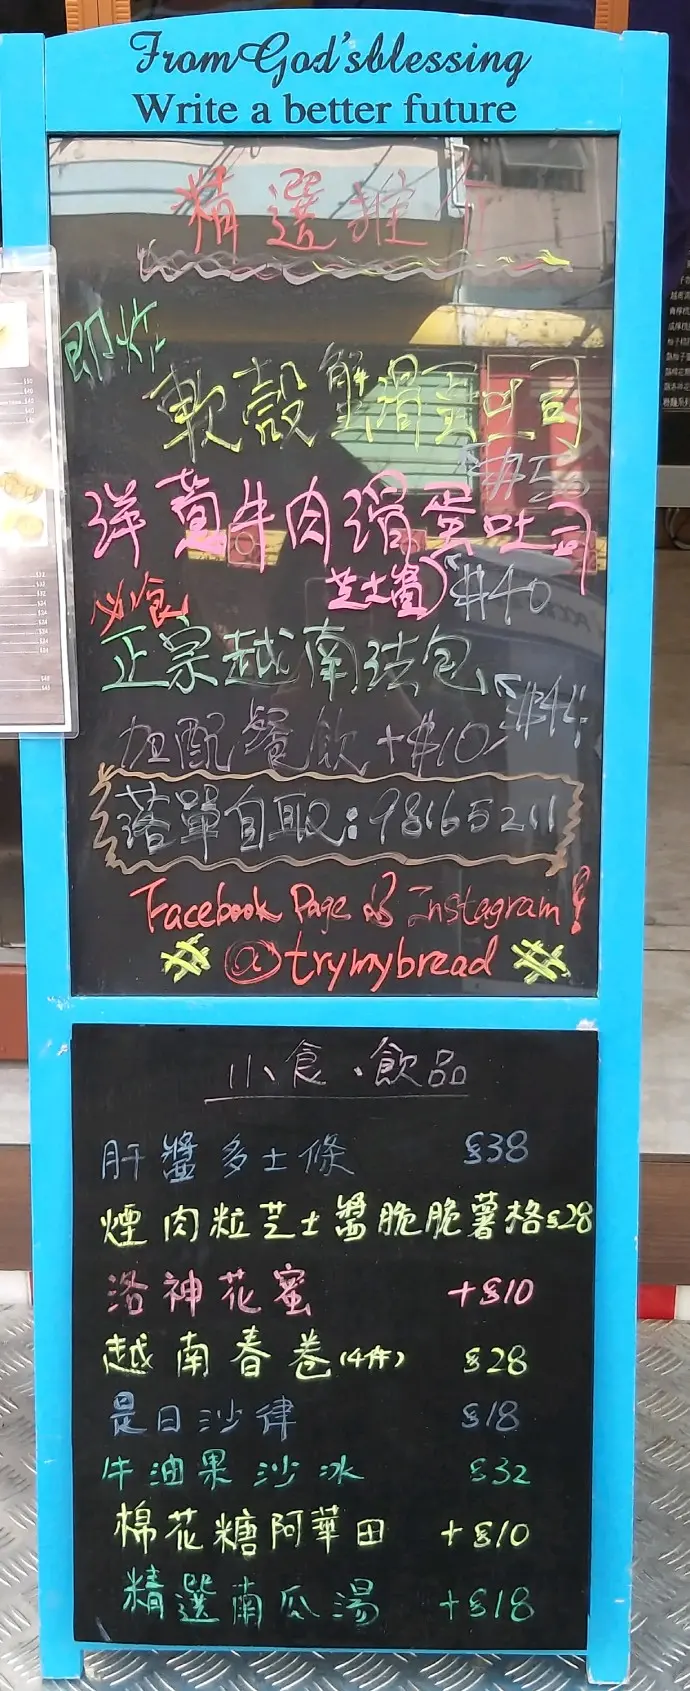 From God'sblessing
Write a better future
精選推介
即炸
軟殼蟹滑蛋吐司
洋蔥牛肉滑蛋吐司
芝士窩) $40
必食
正宗越南法包
加配餐飲 +$10
落單自取：98165211
Facebook Page & Instagram!
# @trymybread #
小食、飲品
肝醬多士條 $38
煙肉粒芝士醬脆脆薯格 $28
洛神花蜜 +$10
越南春卷(4件) $28
是日沙律 $18
牛油果沙冰 $32
棉花糖阿華田 +$10
精選南瓜湯 +$18